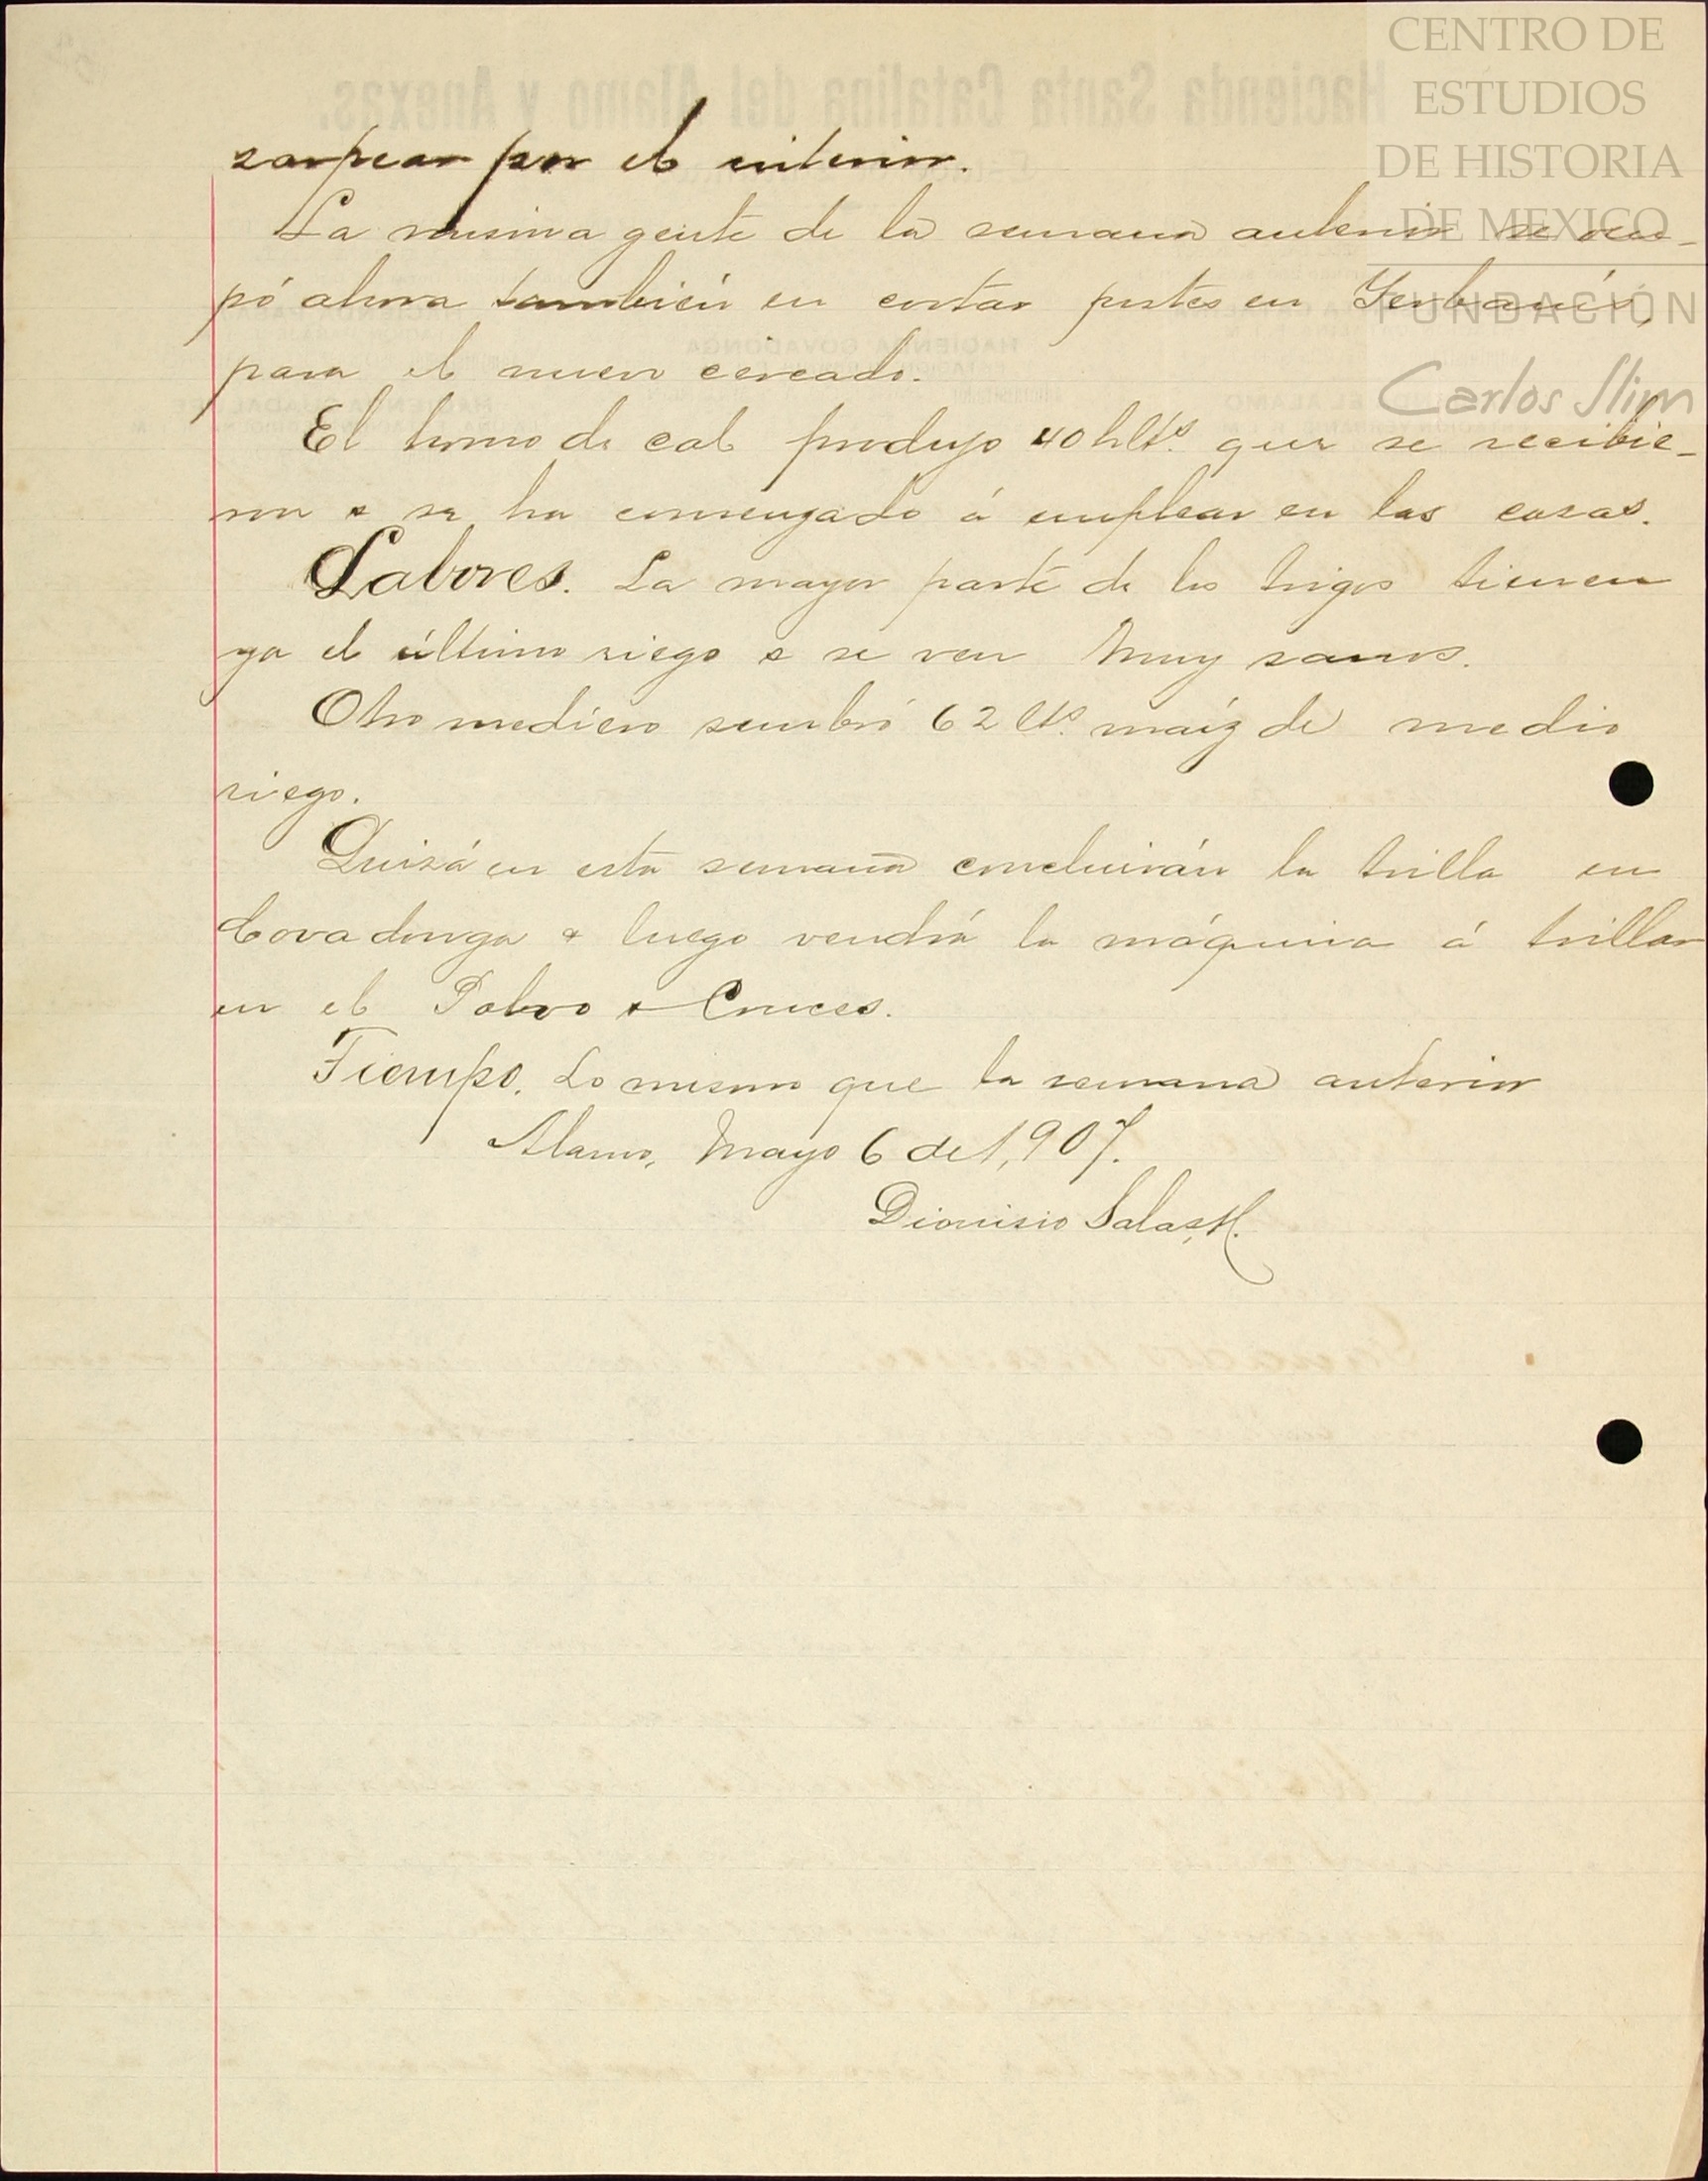 CENTRO DE
ESTUDIOS
DE HISTORIA
DE MEXICO
FUNDACIÓN
Carlos Slim
Hacienda Santa Catalina del Alamo y Anexas.
HACIENDA COVADONGA
zarpear por el interior.
La misma gente de la semana anterior se ocu-
pó ahora también en cortar postes en Yerbanís,
para el nuevo cercado.
El horno de cal produjo 40 hlts. que se recibie-
ron & se ha comenzado á emplear en las casas.
Labores. La mayor parte de los trigos tienen
ya el último riego & se ven muy sanos.
Otro mediero sembró 62 lts. maíz de medio
riego.
Quizá en esta semana concluirán la trilla en
Covadonga & luego vendrá la máquina á trillar
en el Potrero & Cruces.
Tiempo. Lo mismo que la semana anterior
Alamo, Mayo 6 de 1,907.
Dionisio Salas, H.